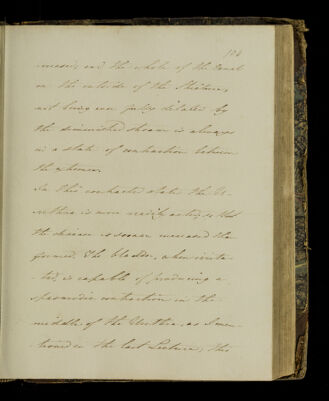 124
and the whole of the Canal
on the outside of the Stricture,
not being ever fully dilated by
the diminished stream is always
in a state of contraction between
the
In this contracted state the U-
rethra is more readily acted, so that
the disease is sooner increased than
formed. The bladder, when irrita-
ted, is capable of producing a
spasmodic contraction in the
middle of the Urethra, as I men-
tioned in the last Lecture; this